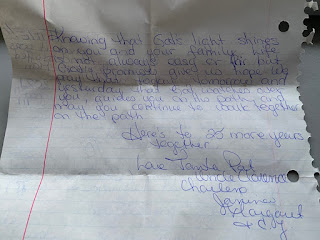 Knowing that God's light shines
on you and your family. Life
is not always easy or fair but
God's promises give us hope
today and tomorrow and
yesterday that God watches over
you, guides you on his path and
may you continue to walk together
on that path
Here's to 25 more years
together
Love
Uncle Clarence
Charlene
Margaret